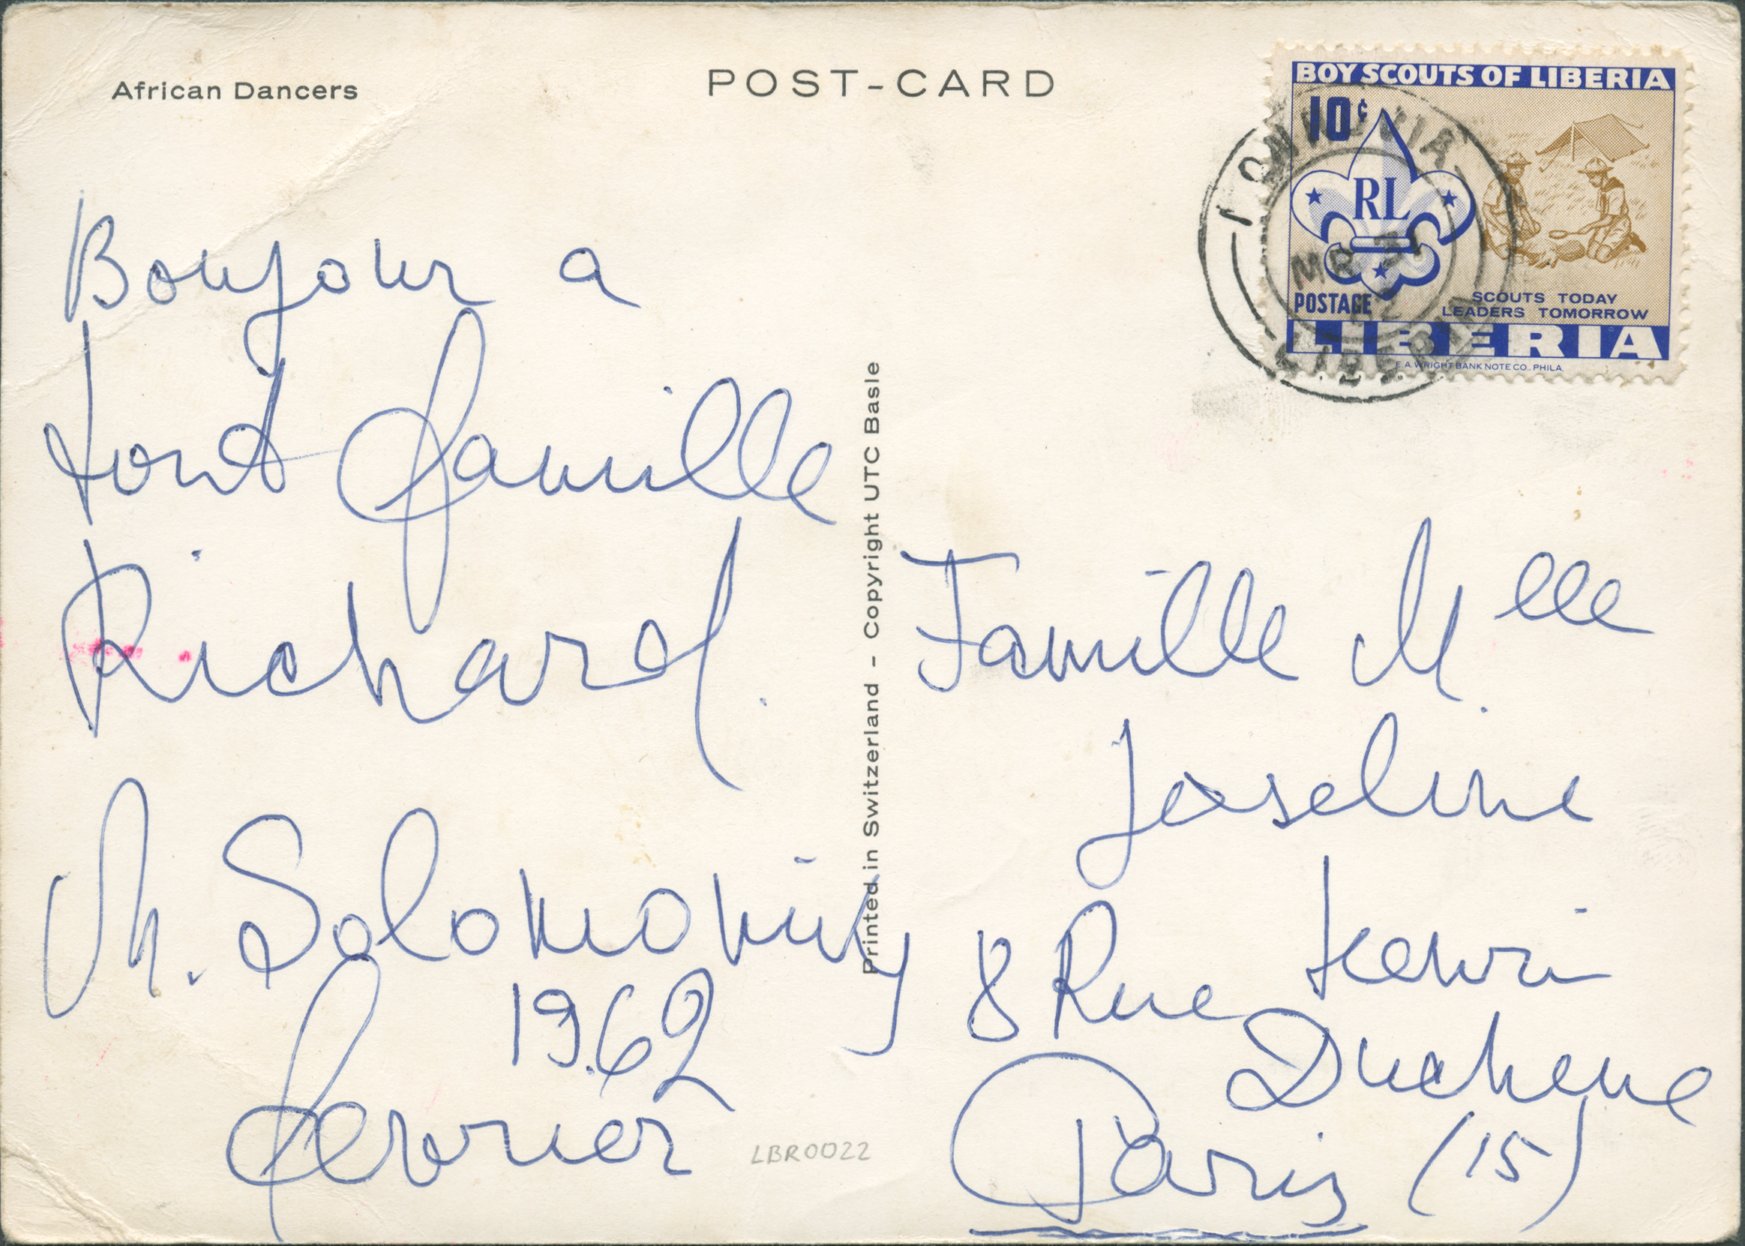 African Dancers
POST-CARD
Bonjour a
tout famille
Richard.
M. Solomoniny
1962
fevrier
LBR0022
Printed in Switzerland - Copyright UTC Basle
BOY SCOUTS OF LIBERIA
10¢
RL
POSTAGE
SCOUTS TODAY
LEADERS TOMORROW
LIBERIA
E.A. WRIGHT BANK NOTE CO., PHILA.
MONROVIA
MR 31
62
LIBERIA
Famille Mlle
Joseline
8 Rue Henri
Duchene
Paris (15)